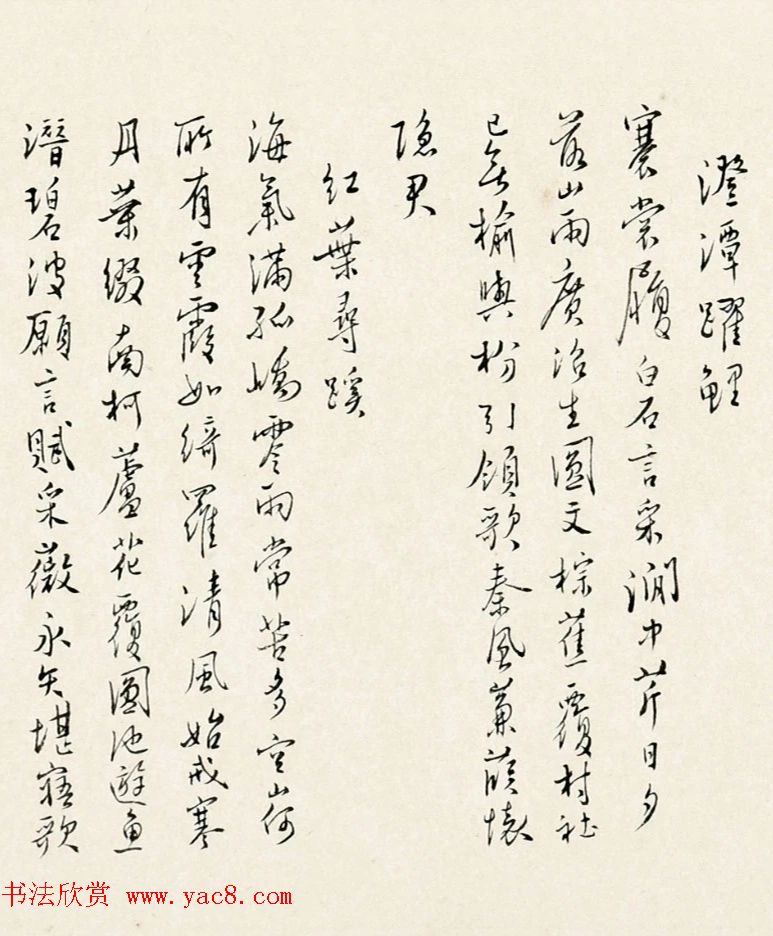 澄潭躍鯉
褰裳履白石言采澗中芹日夕
落山雨廣沼生圓文棕蕉覆村社
已無榆與枌引領歌秦風蒹葭懷
隐君
红葉尋蹊
海氣滿孤嶠零雨常苦多空山何
所有雲霞如綺羅清風始戒寒
丹葉綴南柯蘆花覆圓池遊魚
潛碧波願言賦采薇永矢堪寤歌
书法欣赏 www.yac8.com